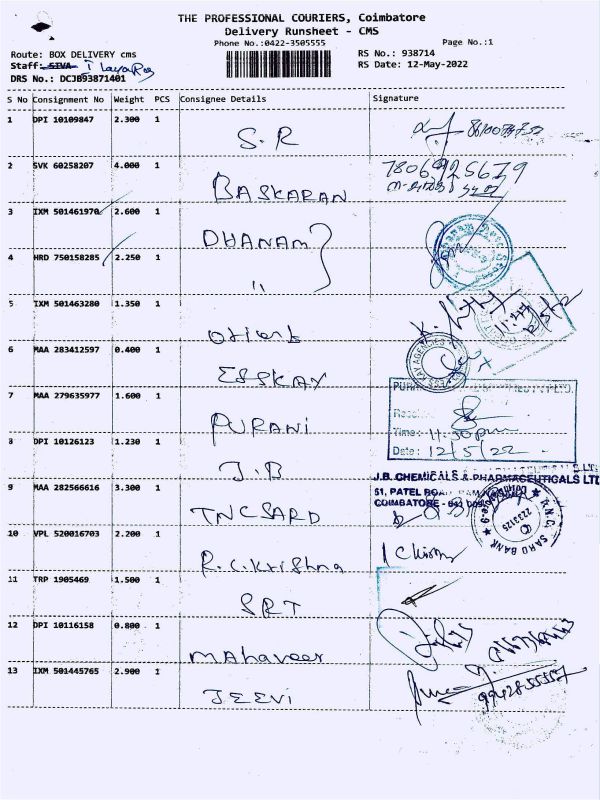 THE PROFESSIONAL COURIERS, Coimbatore
Delivery Runsheet - CMS
Phone No.:0422-3505555
Page No.:1
Route: BOX DELIVERY cms
RS No.: 938714
Staff: SIVA
RS Date: 12-May-2022
DRS No.: DCJB93871401
S No Consignment No Weight PCS Consignee Details Signature
1 DPI 10109847 2.300 1
S.R
2 SVK 60258207 4.000 1
BASKARAN
3 IXM 501461970 2.600 1
DHANAM
4 HRD 750158285 2.250 1
"
5 IXM 501463280 1.350 1
orient
6 MAA 283412597 0.400 1
ESSKAY
7 MAA 279635977 1.600 1
PURANi
Time: 11:50 pm
Date: 12/5/22
8 DPI 10126123 1.230 1
J.B
J.B. CHEMICALS & PHARMACEUTICALS LTD
51, PATEL ROAD
COIMBATORE
9 MAA 282566616 3.300 1
TNCSARD
T.N.C. SARD BANK
10 VPL 520016703 2.200 1
R.C.Krishna
11 TRP 1905469 1.500 1
SRT
12 DPI 10116158 0.800 1
mAhaveer
13 IXM 501445765 2.900 1
JEEVi